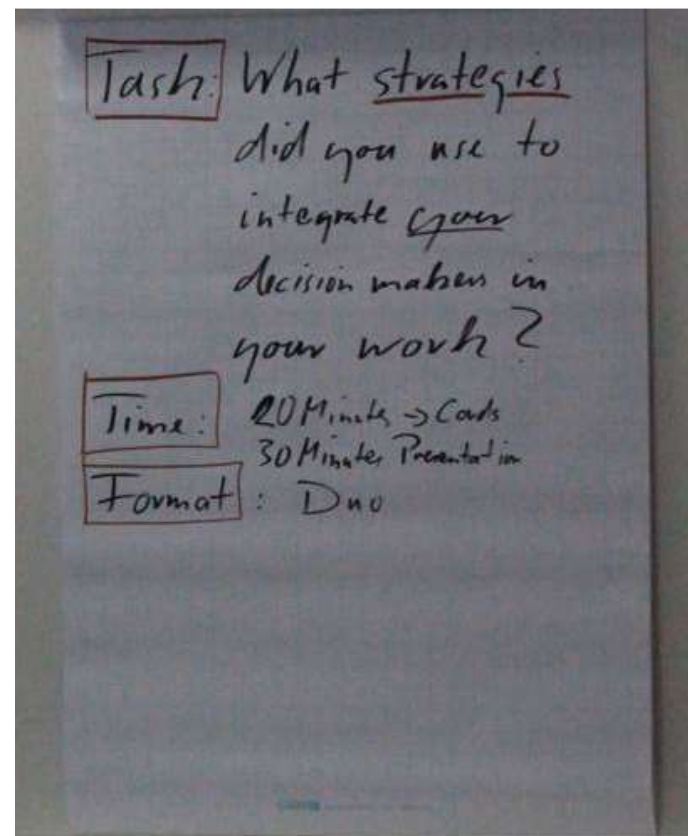 Task: What strategies
did you use to
integrate your
decision makers in
your work?
Time: 20 Minutes → Cards
30 Minutes Presentation
Format: Duo